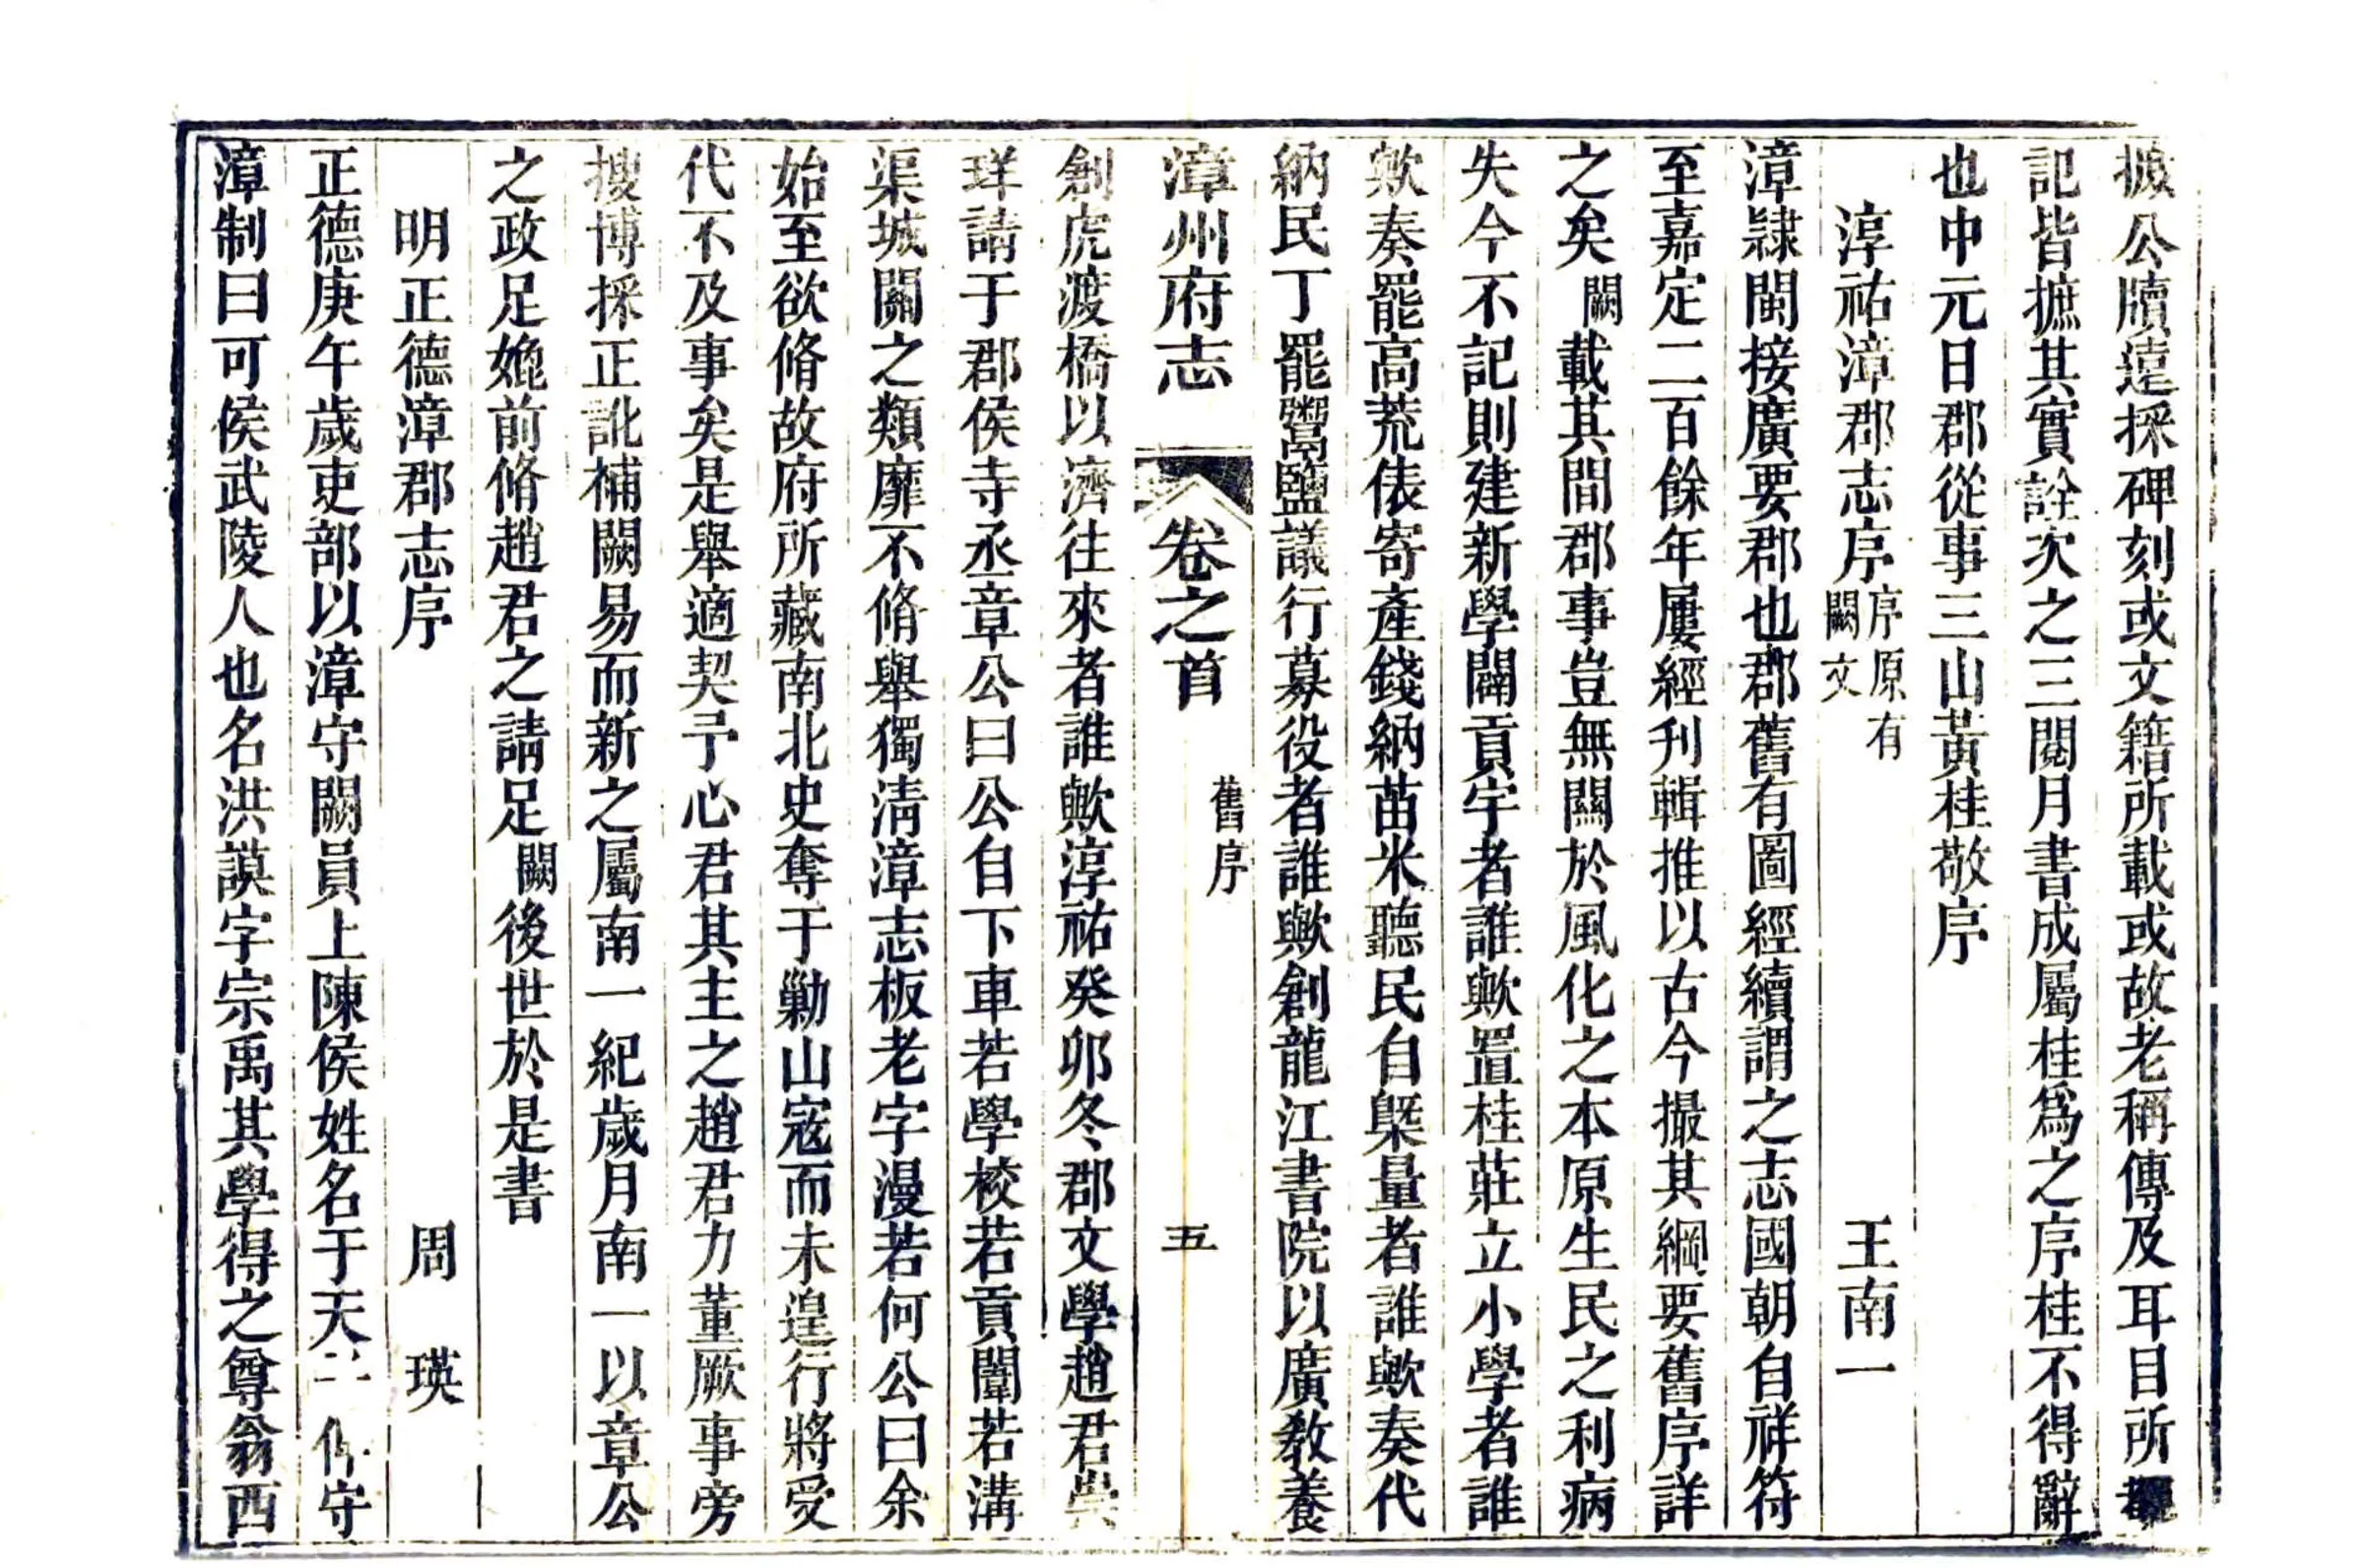 據公牘遠採碑刻或文籍所載或故老稱傳及耳目所
記皆摭其實詮次之三閱月書成屬桂爲之序桂不得辭
也中元日郡從事三山黃桂敬序
淳祐漳郡志序序原有闕文 王南一
漳隸閩接廣要郡也郡舊有圖經續謂之志國朝自祥符
至嘉定二百餘年屢經刋輯推以古今撮其綱要舊序詳
之矣闕載其間郡事豈無關於風化之本原生民之利病
失今不記則建新學闢貢宇者誰歟置桂莊立小學者誰
歟奏罷高荒俵寄產錢納苗米聽民自槩量者誰歟奏代
納民丁罷鬻鹽議行募役者誰歟創龍江書院以廣教養
漳州府志 卷之首 舊序 五
創虎渡橋以濟往來者誰歟淳祐癸卯冬郡文學趙君與
珜請于郡侯寺丞章公曰公自下車若學校若貢闈若溝
渠城關之類靡不脩舉獨清漳志板老字漫若何公曰余
始至欲脩故府所藏南北史奪于勦山寇而未遑行將受
代不及事矣是舉適契予心君其主之趙君力董厥事旁
搜博採正訛補闕易而新之屬南一紀歲月南一以章公
之政足媲前脩趙君之請足闕後世於是書
明正德漳郡志序 周瑛
正德庚午歲吏部以漳守闕員上陳侯姓名于天 守
漳制曰可侯武陵人也名洪謨字宗禹其學得之尊翁西